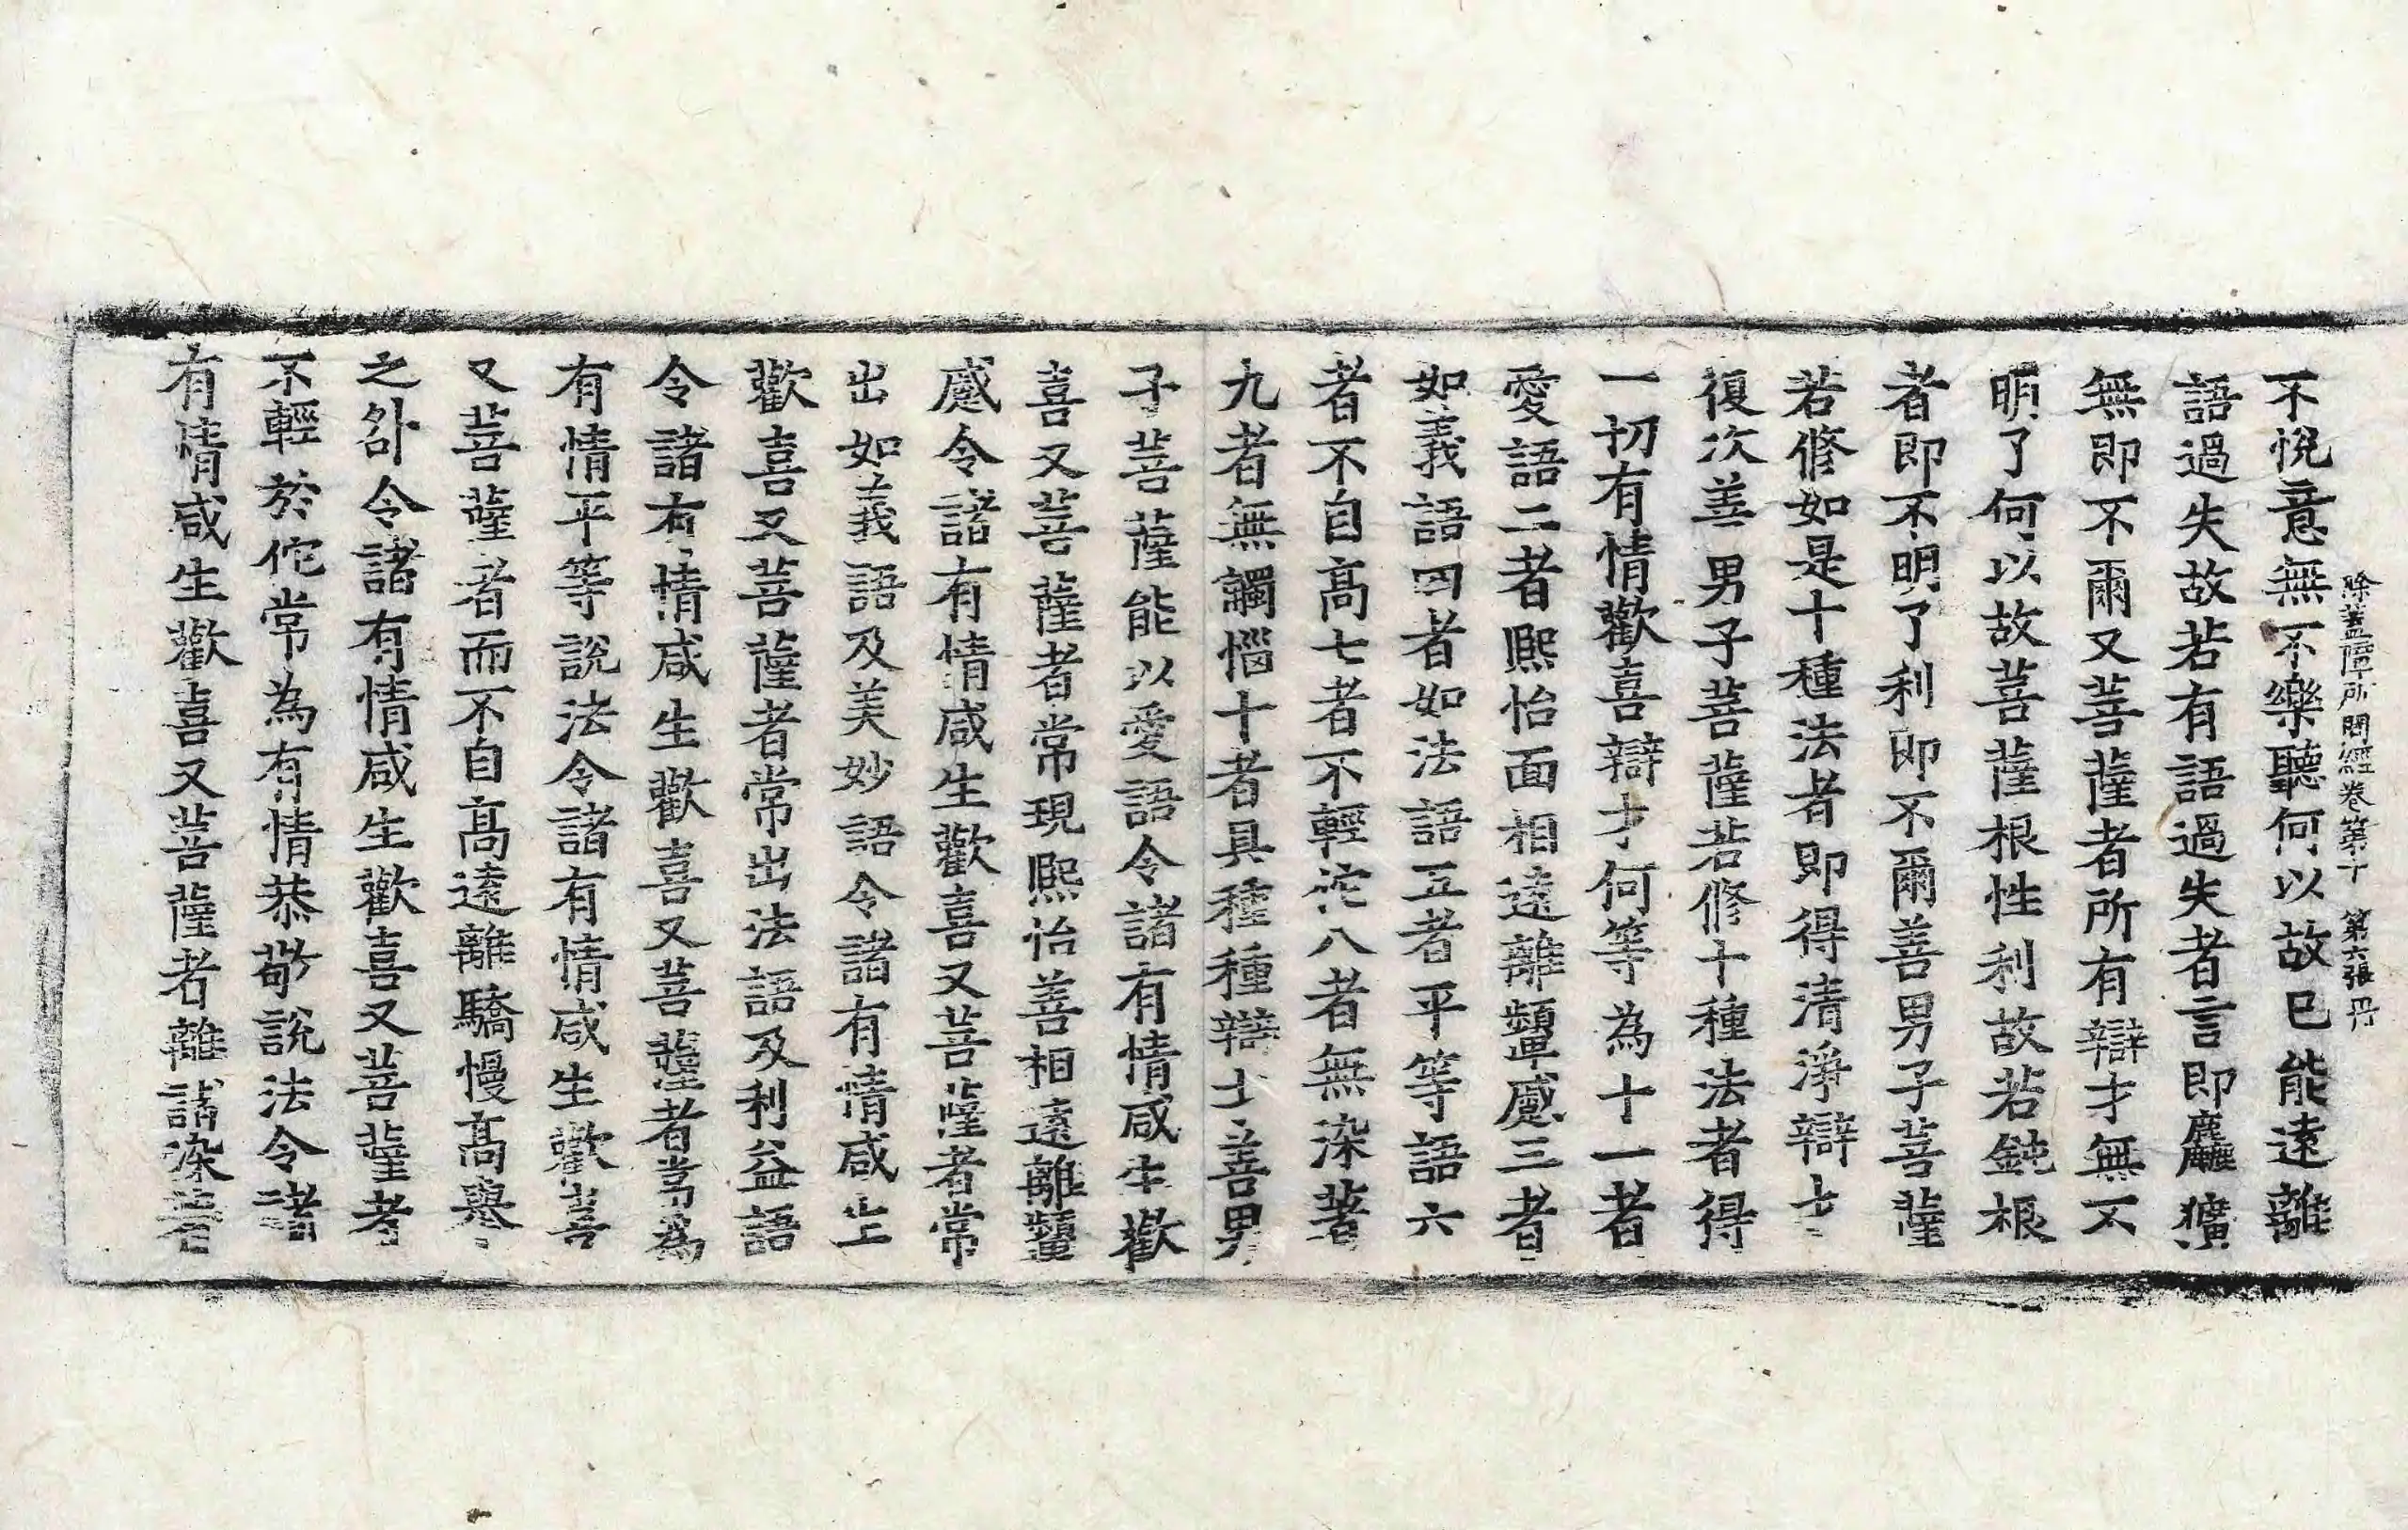 除蓋障所問經卷第十　第六張　丹
不悅意無不樂聽何以故已能遠離
語過失故若有語過失者言即麤獷
無即不爾又菩薩者所有辯才無不
明了何以故菩薩根性利故若鈍根
者即不明了利即不爾善男子菩薩
若修如是十種法者即得清淨辯才
復次善男子菩薩若修十種法者得
一切有情歡喜辯才何等為十一者
愛語二者熙怡面相遠離顰蹙三者
如義語四者如法語五者平等語六
者不自高七者不輕他八者無染著
九者無觸惱十者具種種辯才善男
子菩薩能以愛語令諸有情咸生歡
喜又菩薩者常現熙怡善相遠離顰
蹙令諸有情咸生歡喜又菩薩者常
出如義語及美妙語令諸有情咸生
歡喜又菩薩者常出法語及利益語
令諸有情咸生歡喜又菩薩者常為
有情平等說法令諸有情咸生歡喜
又菩薩者而不自高遠離驕慢高舉
之外令諸有情咸生歡喜又菩薩者
不輕於佗常為有情恭敬說法令諸
有情咸生歡喜又菩薩者離諸染著